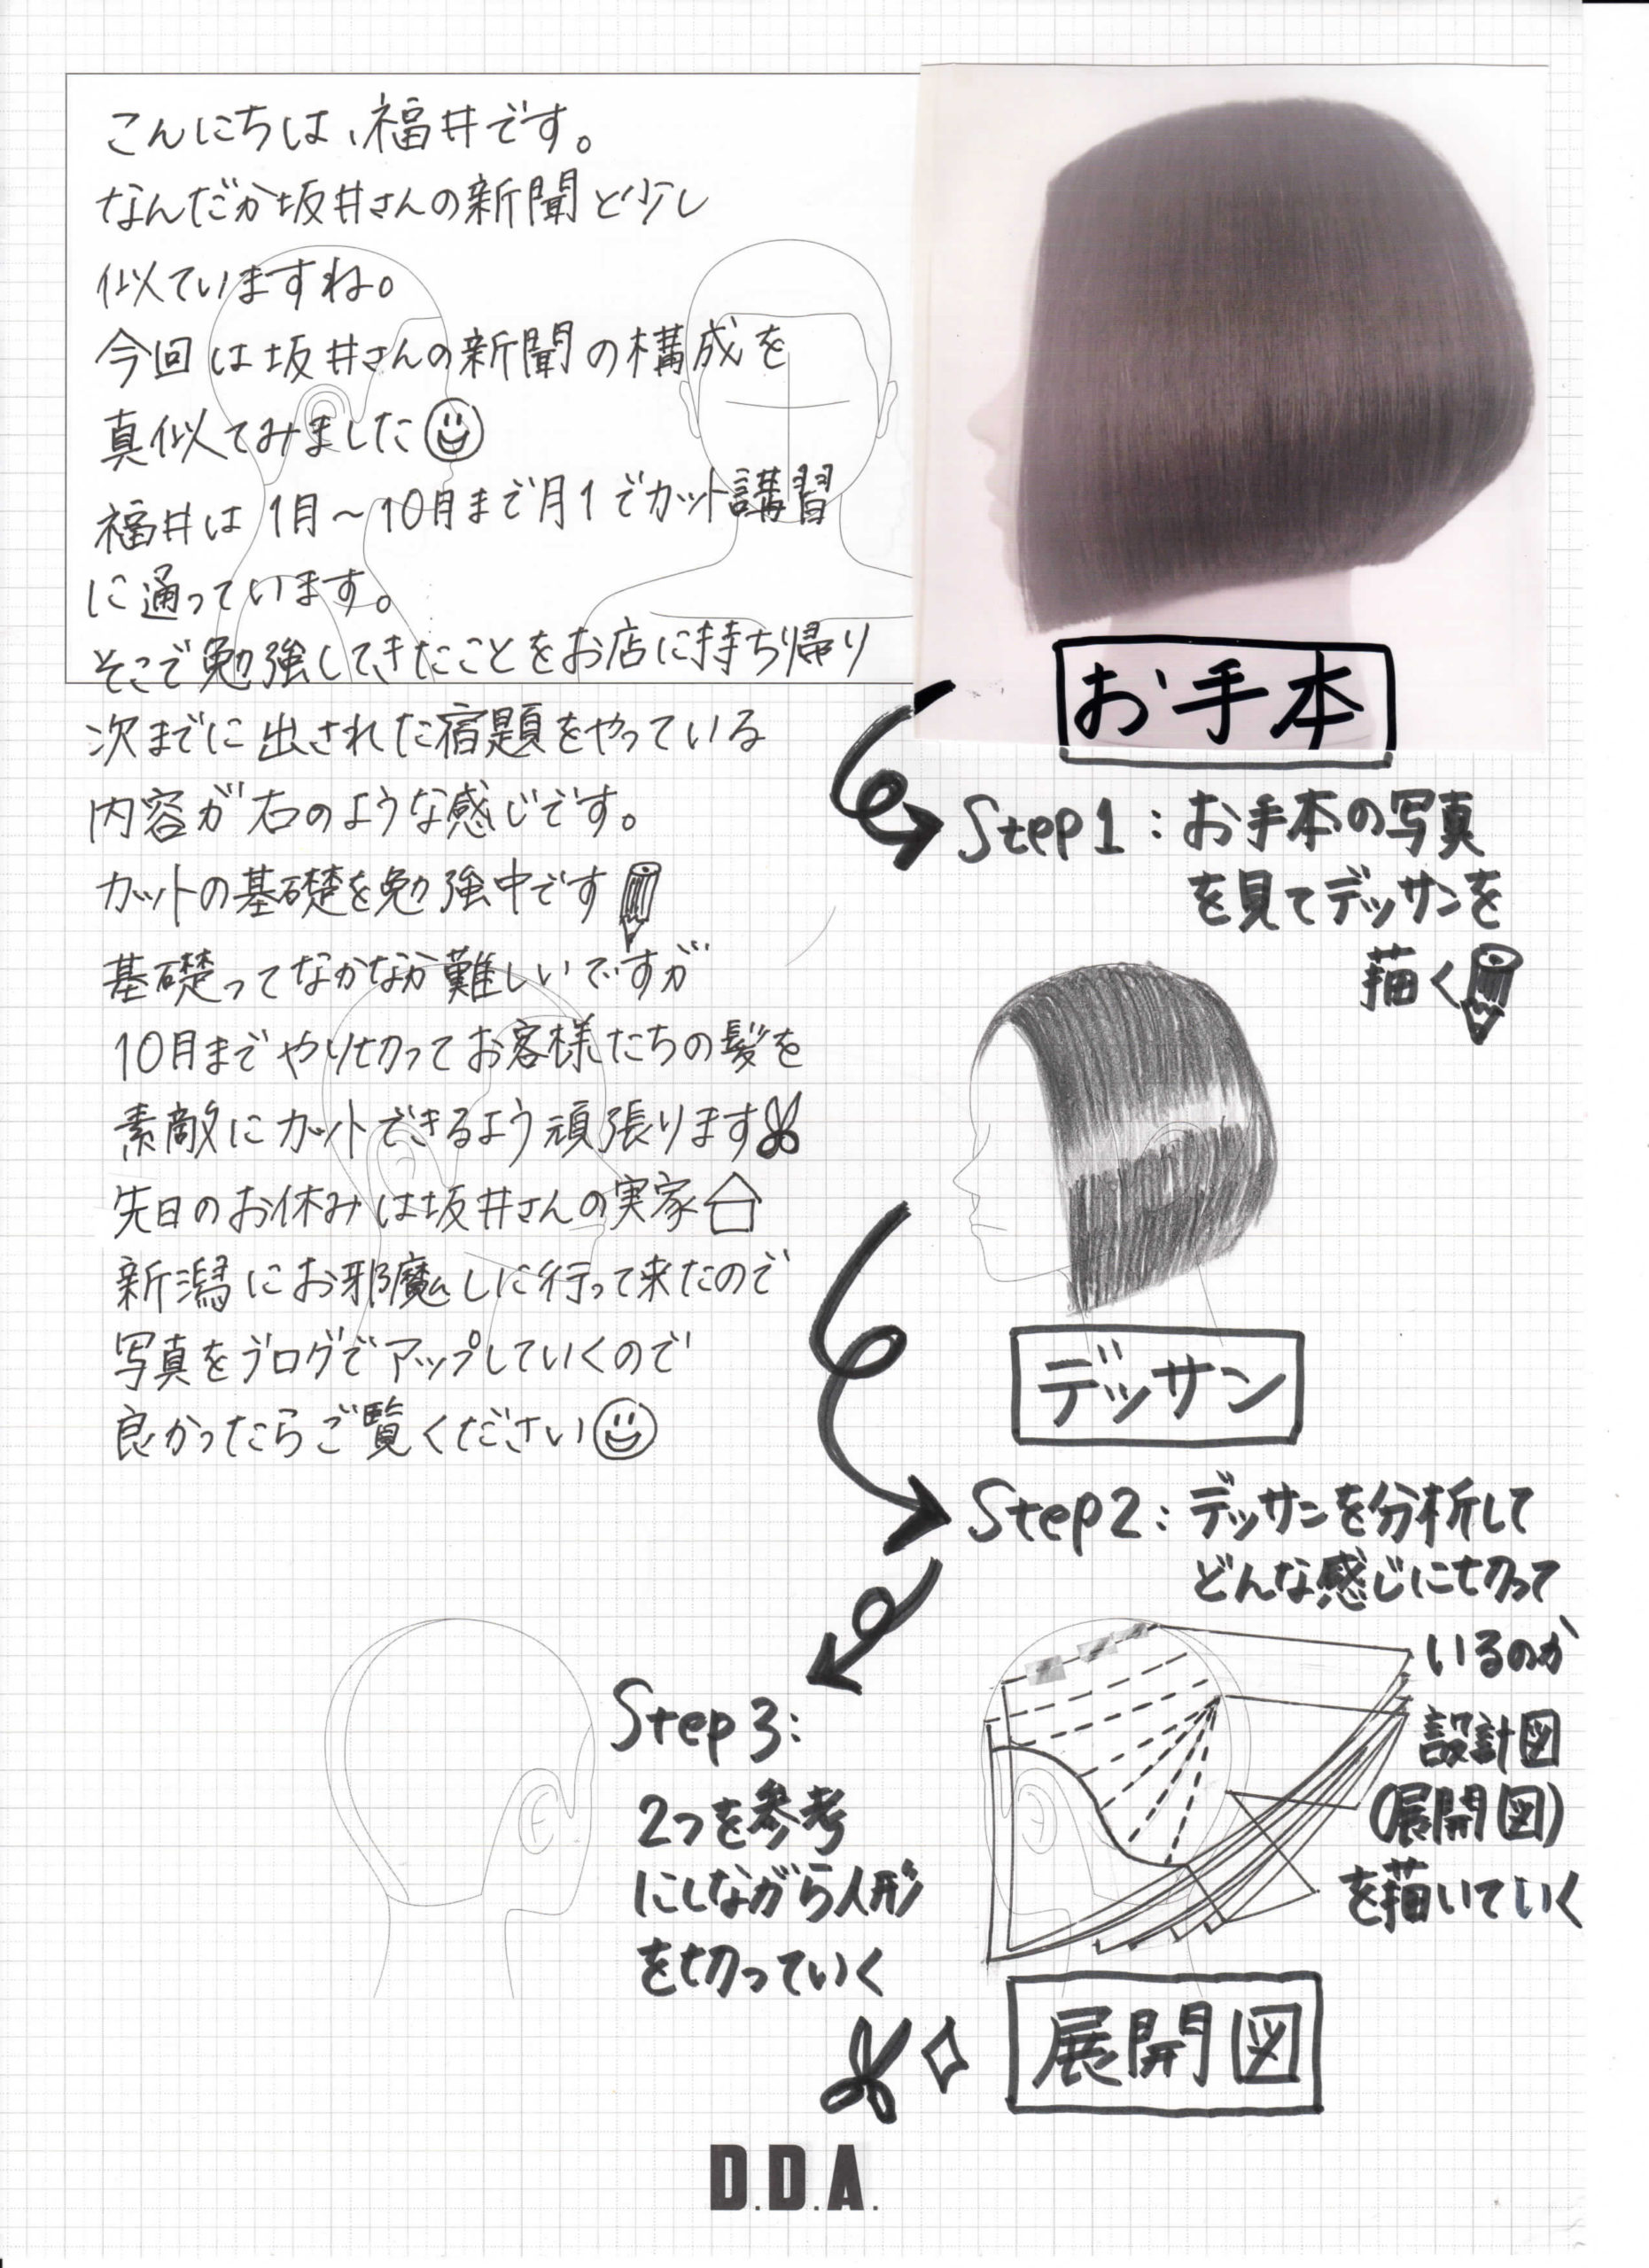 こんにちは、福井です。
なんだか坂井さんの新聞と少し
似ていますね。
今回は坂井さんの新聞の構成を
真似てみました
福井は1月～10月まで月1でカット講習
に通っています。
そこで勉強してきたことをお店に持ち帰り
次までに出された宿題をやっている
内容が右のような感じです。
カットの基礎を勉強中です
基礎ってなかなか難しいですが
10月までやり切ってお客様たちの髪を
素敵にカットできるよう頑張ります
先日のお休みは坂井さんの実家
新潟にお邪魔しに行って来たので
写真をブログでアップしていくので
良かったらご覧ください
お手本
Step1:お手本の写真
を見てデッサンを
描く
デッサン
Step2:デッサンを分析して
どんな感じに切って
いるのか
設計図
(展開図)
を描いていく
展開図
Step3:
2つを参考
にしながら人形
を切っていく
D.D.A.